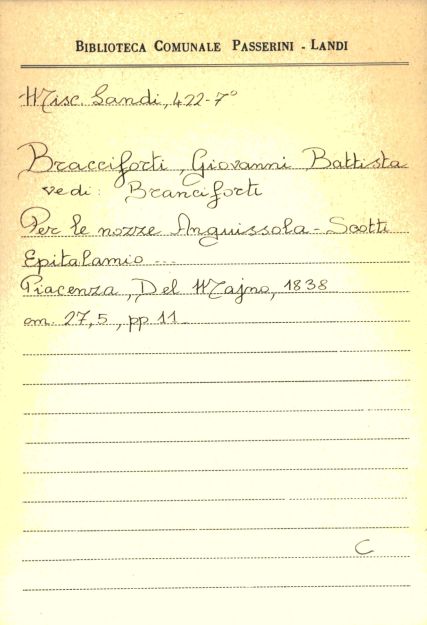 BIBLIOTECA COMUNALE PASSERINI - LANDI
Misc. Landi, 422-7°
Bracciforti, Giovanni Battista
vedi: Branciforti
Per le nozze Anguissola-Scotti
Epitalamio ---
Piacenza, Del Majno, 1838
cm. 27,5, pp 11.
C